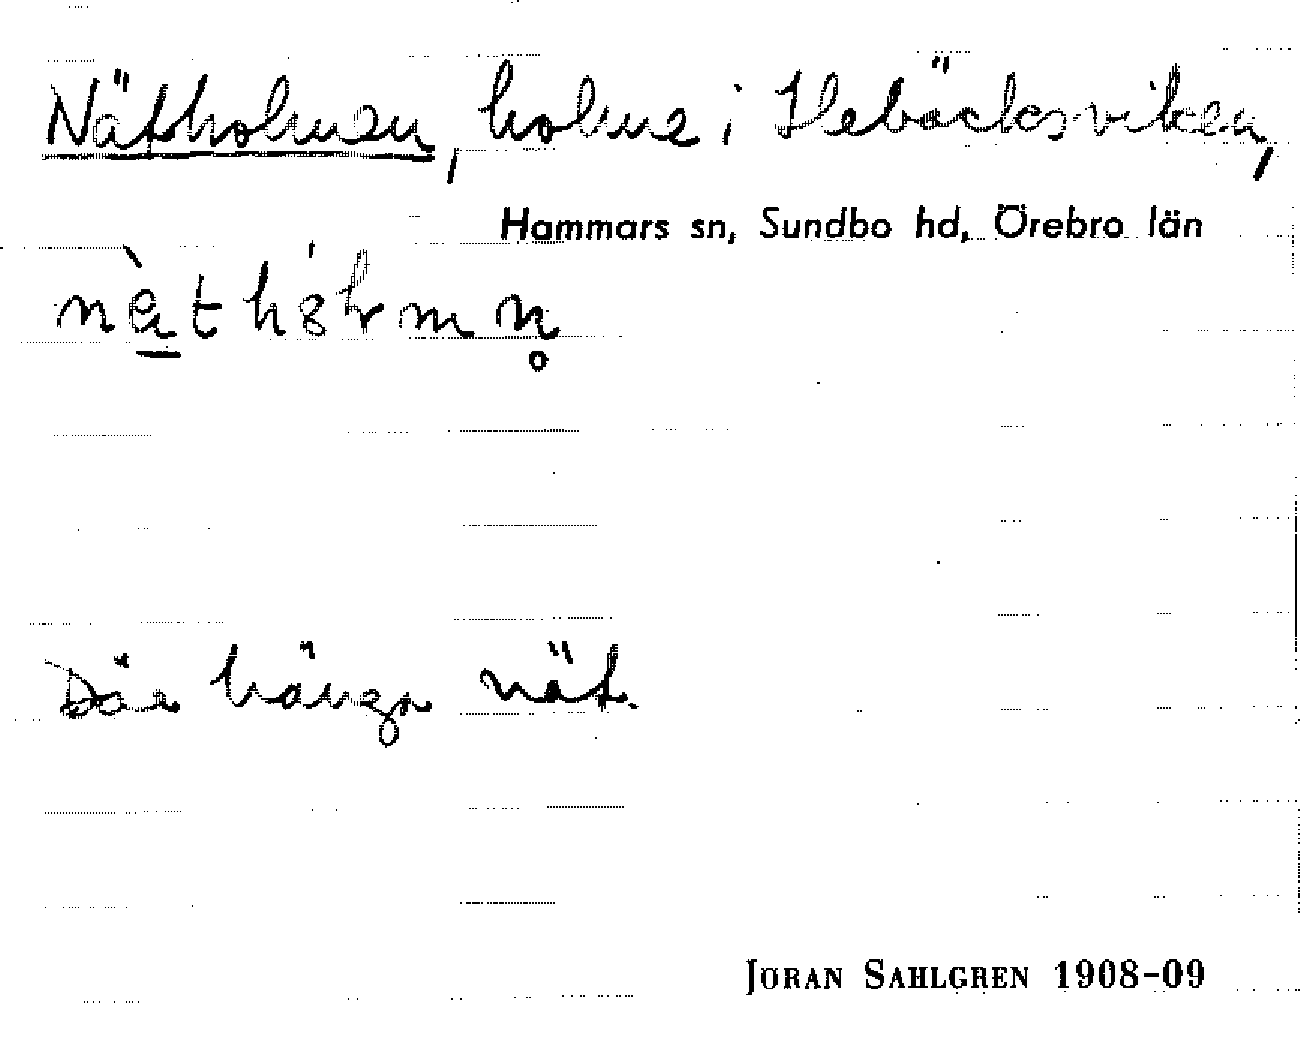 Nätholmen, holme i Hebäcksviken,
Hammars sn, Sundbo hd, Örebro län
Där hänga nät.
JÖRAN SAHLGREN 1908-09